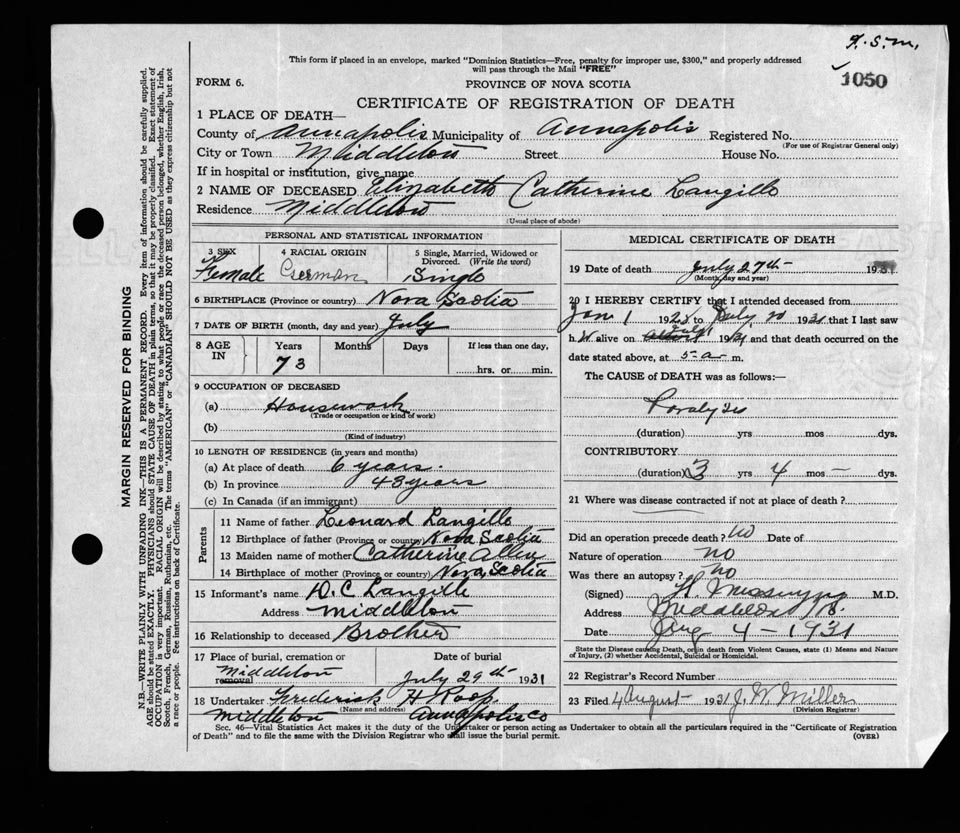 F. S. M.
This form if placed in an envelope, marked "Dominion Statistics—Free, penalty for improper use, $300," and properly addressed
will pass through the Mail "FREE"
1050
FORM 6.
PROVINCE OF NOVA SCOTIA
CERTIFICATE OF REGISTRATION OF DEATH
1 PLACE OF DEATH—
County of Annapolis Municipality of Annapolis Registered No.
(For use of Registrar General only)
City or Town Middleton Street House No.
If in hospital or institution, give name
2 NAME OF DECEASED Elizabeth Catherine Langille
Residence Middleton
(Usual place of abode)
PERSONAL AND STATISTICAL INFORMATION
3 SEX 4 RACIAL ORIGIN 5 Single, Married, Widowed or
Divorced. (Write the word)
Female German Single
6 BIRTHPLACE (Province or country) Nova Scotia
7 DATE OF BIRTH (month, day and year) July
8 AGE IN Years Months Days If less than one day,
73 hrs. or min.
9 OCCUPATION OF DECEASED
(a) Housework
(Trade or occupation or kind of work)
(b)
(Kind of industry)
10 LENGTH OF RESIDENCE (in years and months)
(a) At place of death 6 years.
(b) In province 48 years
(c) In Canada (if an immigrant)
Parents
11 Name of father Leonard Langille
12 Birthplace of father (Province or country) Nova Scotia
13 Maiden name of mother Catherine Allen
14 Birthplace of mother (Province or country) Nova Scotia
15 Informant's name D. C Langille
Address Middleton
16 Relationship to deceased Brother
17 Place of burial, cremation or removal Date of burial
Middleton July 29th 1931
18 Undertaker Frederick H Roop
(Name and address)
Middleton Annapolis Co
MEDICAL CERTIFICATE OF DEATH
19 Date of death July 27th 1931
(Month, day and year)
20 I HEREBY CERTIFY that I attended deceased from
Jan 1 192 to July 1931 that I last saw
h alive on July 1931 and that death occurred on the
date stated above, at 5 a m.
The CAUSE of DEATH was as follows:—
Paralysis
(duration) yrs mos dys.
CONTRIBUTORY
(duration) 3 yrs 4 mos — dys.
21 Where was disease contracted if not at place of death?
Did an operation precede death? No Date of
Nature of operation no
Was there an autopsy? no
(Signed) M.D.
Address Middleton
Date Aug 4 - 1931
State the Disease causing Death, or in death from Violent Causes, state (1) Means and Nature
of Injury, (2) whether Accidental, Suicidal or Homicidal.
22 Registrar's Record Number
23 Filed 4 August 1931 J. W. Miller
(Division Registrar)
Sec. 46—Vital Statistics Act makes it the duty of the Undertaker or person acting as Undertaker to obtain all the particulars required in the "Certificate of Registration
of Death" and to file the same with the Division Registrar who shall issue the burial permit.
(OVER)
MARGIN RESERVED FOR BINDING
N.B.—WRITE PLAINLY WITH UNFADING INK—THIS IS A PERMANENT RECORD. Every item of information should be carefully supplied.
AGE should be stated EXACTLY. PHYSICIANS should STATE CAUSE OF DEATH in plain terms, so that it may be properly classified. Exact statement of
OCCUPATION is very important. RACIAL ORIGIN will be described by stating to what people or race the deceased person belonged, whether English, Irish,
Scotch, French, German, Russian, Ruthenian, etc. The terms "AMERICAN" or "CANADIAN" SHOULD NOT BE USED as they express citizenship but not
a race or people. See instructions on back of Certificate.